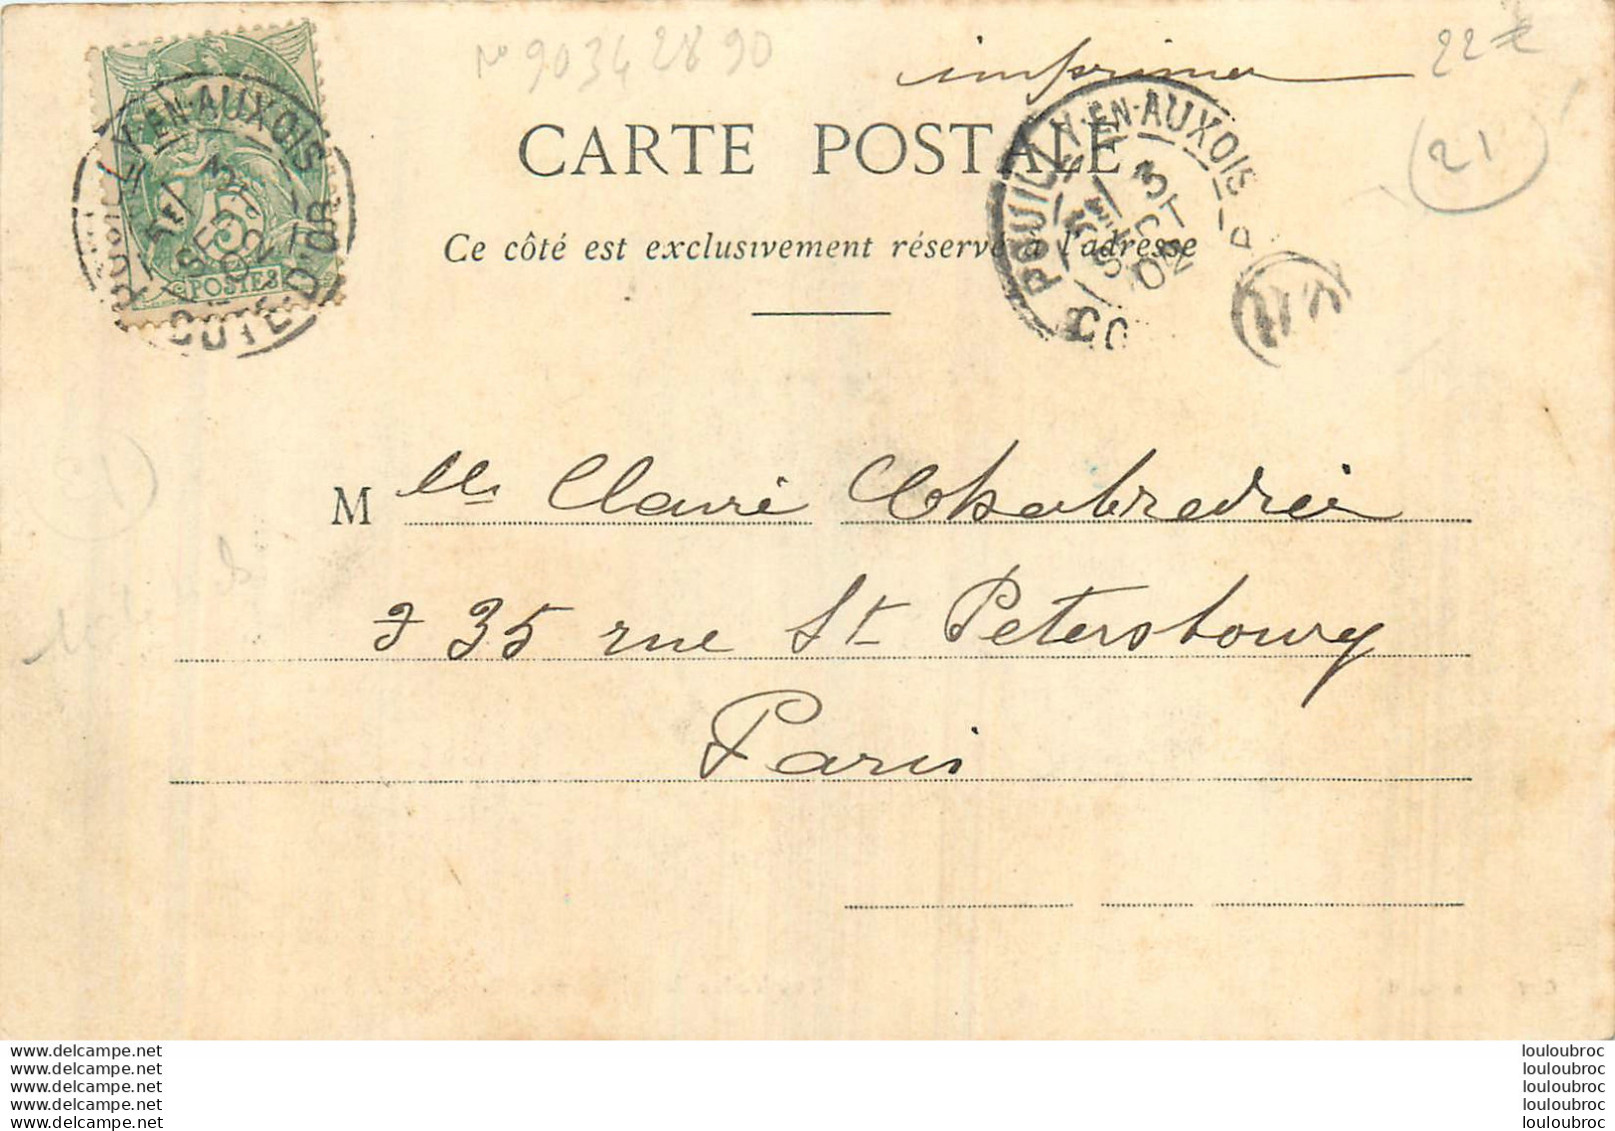 N° 90342890
imprimé
22€
CARTE POSTALE
21
POUILLY-EN-AUXOIS
3E / 3
SEPT
02
COTE-D'OR
5c
POSTES
POUILLY-EN-AUXOIS
3E / 3
SEPT
02
CO D
Ce côté est exclusivement réservé à l'adresse
Mlle Claire Chabredier
35 rue St Petersbourg
Paris
www.delcampe.net
www.delcampe.net
www.delcampe.net
www.delcampe.net
www.delcampe.net
louloubroc
louloubroc
louloubroc
louloubroc
louloubroc